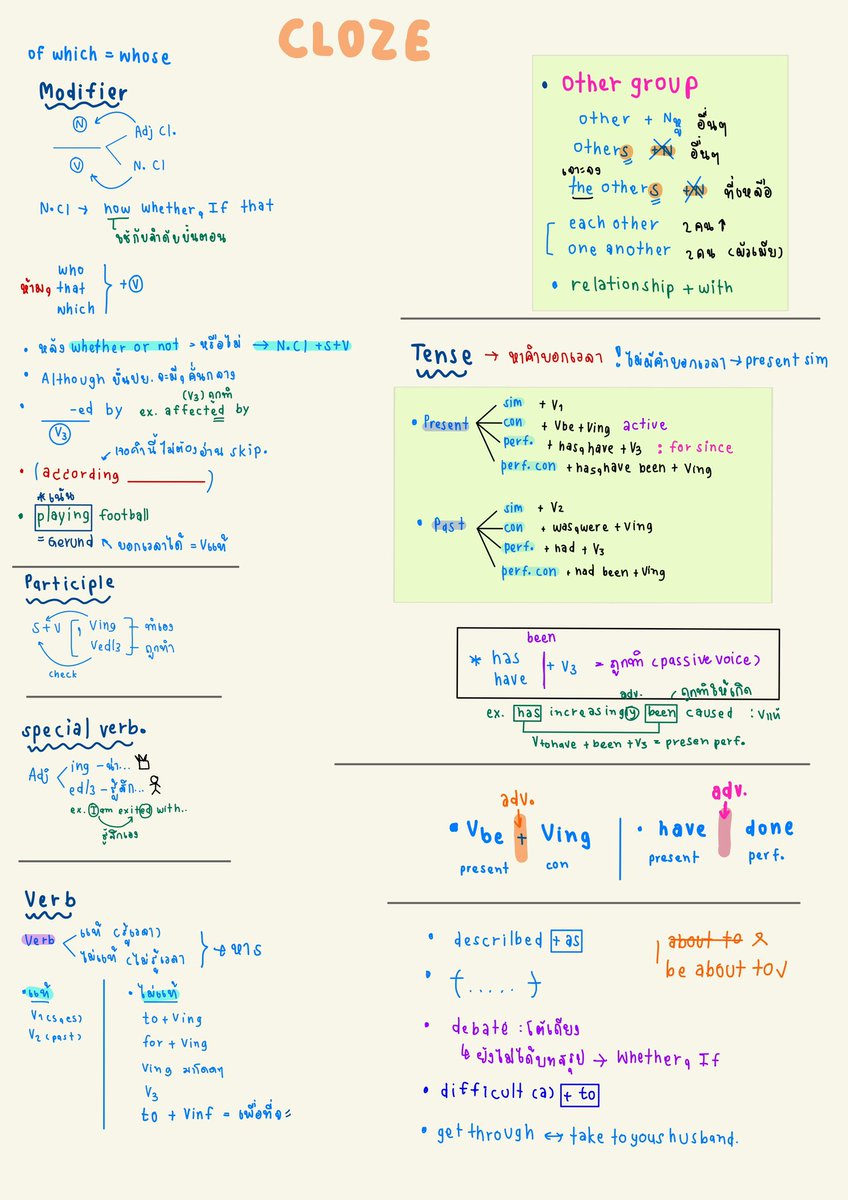 CLOZE
of which = whose
Modifier
N
Adj Cl.
V
N. Cl
N.Cl → how whether, If that
ใช้กับลำดับขั้นตอน
ห้าม,
who
that
which
+ V
• หลัง whether or not = หรือไม่ → N.Cl + S+V
• Although ขึ้นปย. จะมี, คั่นกลาง
(V3) ถูกทำ
• -ed by ex. affected by
V3
เจอคำนี้ไม่ต้องอ่าน skip.
• (according )
*เน้น
• playing football
= Gerund บอกเวลาได้ = Vแท้
Participle
S+V , Ving - ทำเอง
Ved/3 - ถูกทำ
check
special verb.
Adj
ing - น่า...
ed/3 - รู้สึก...
ex. I am exited with..
รู้สึกเอง
Verb
Verb
แท้ (รู้เวลา)
ไม่แท้ (ไม่รู้เวลา)
→ หาร
• แท้
V1 (s,es)
V2 (past)
• ไม่แท้
to + Ving
for + Ving
Ving
V3
to + Vinf = เพื่อที่จะ
• Other group
other + Nหู อื่นๆ
others +N อื่นๆ
เจาะจง
the others +N ที่เหลือ
each other 2 คน ↑
one another 2 คน (ผัวเมีย)
• relationship + with
Tense → หาคำบอกเวลา ! ไม่มีคำบอกเวลา → present sim
• Present
sim + V1
con + Vbe + Ving active
perf. + has, have + V3 : for since
perf. con + has, have been + Ving
• Past
sim + V2
con + was, were + Ving
perf. + had + V3
perf. con + had been + Ving
been
* has
have
+ V3 = ถูกทำ (passive voice)
adv. ถูกทำให้เกิด
ex. has increasingly been caused : Vแท้
V to have + been + V3 = presen perf.
adv.
• Vbe + Ving
present con
adv.
• have done
present perf.
• descrilbed + as
about to
be about to ✓
• (.....)
• debate : โต้เถียง
↳ ยังไม่ได้บทสรุป → Whether, If
• difficult (a) + to
• get through ↔ take to yous husband.